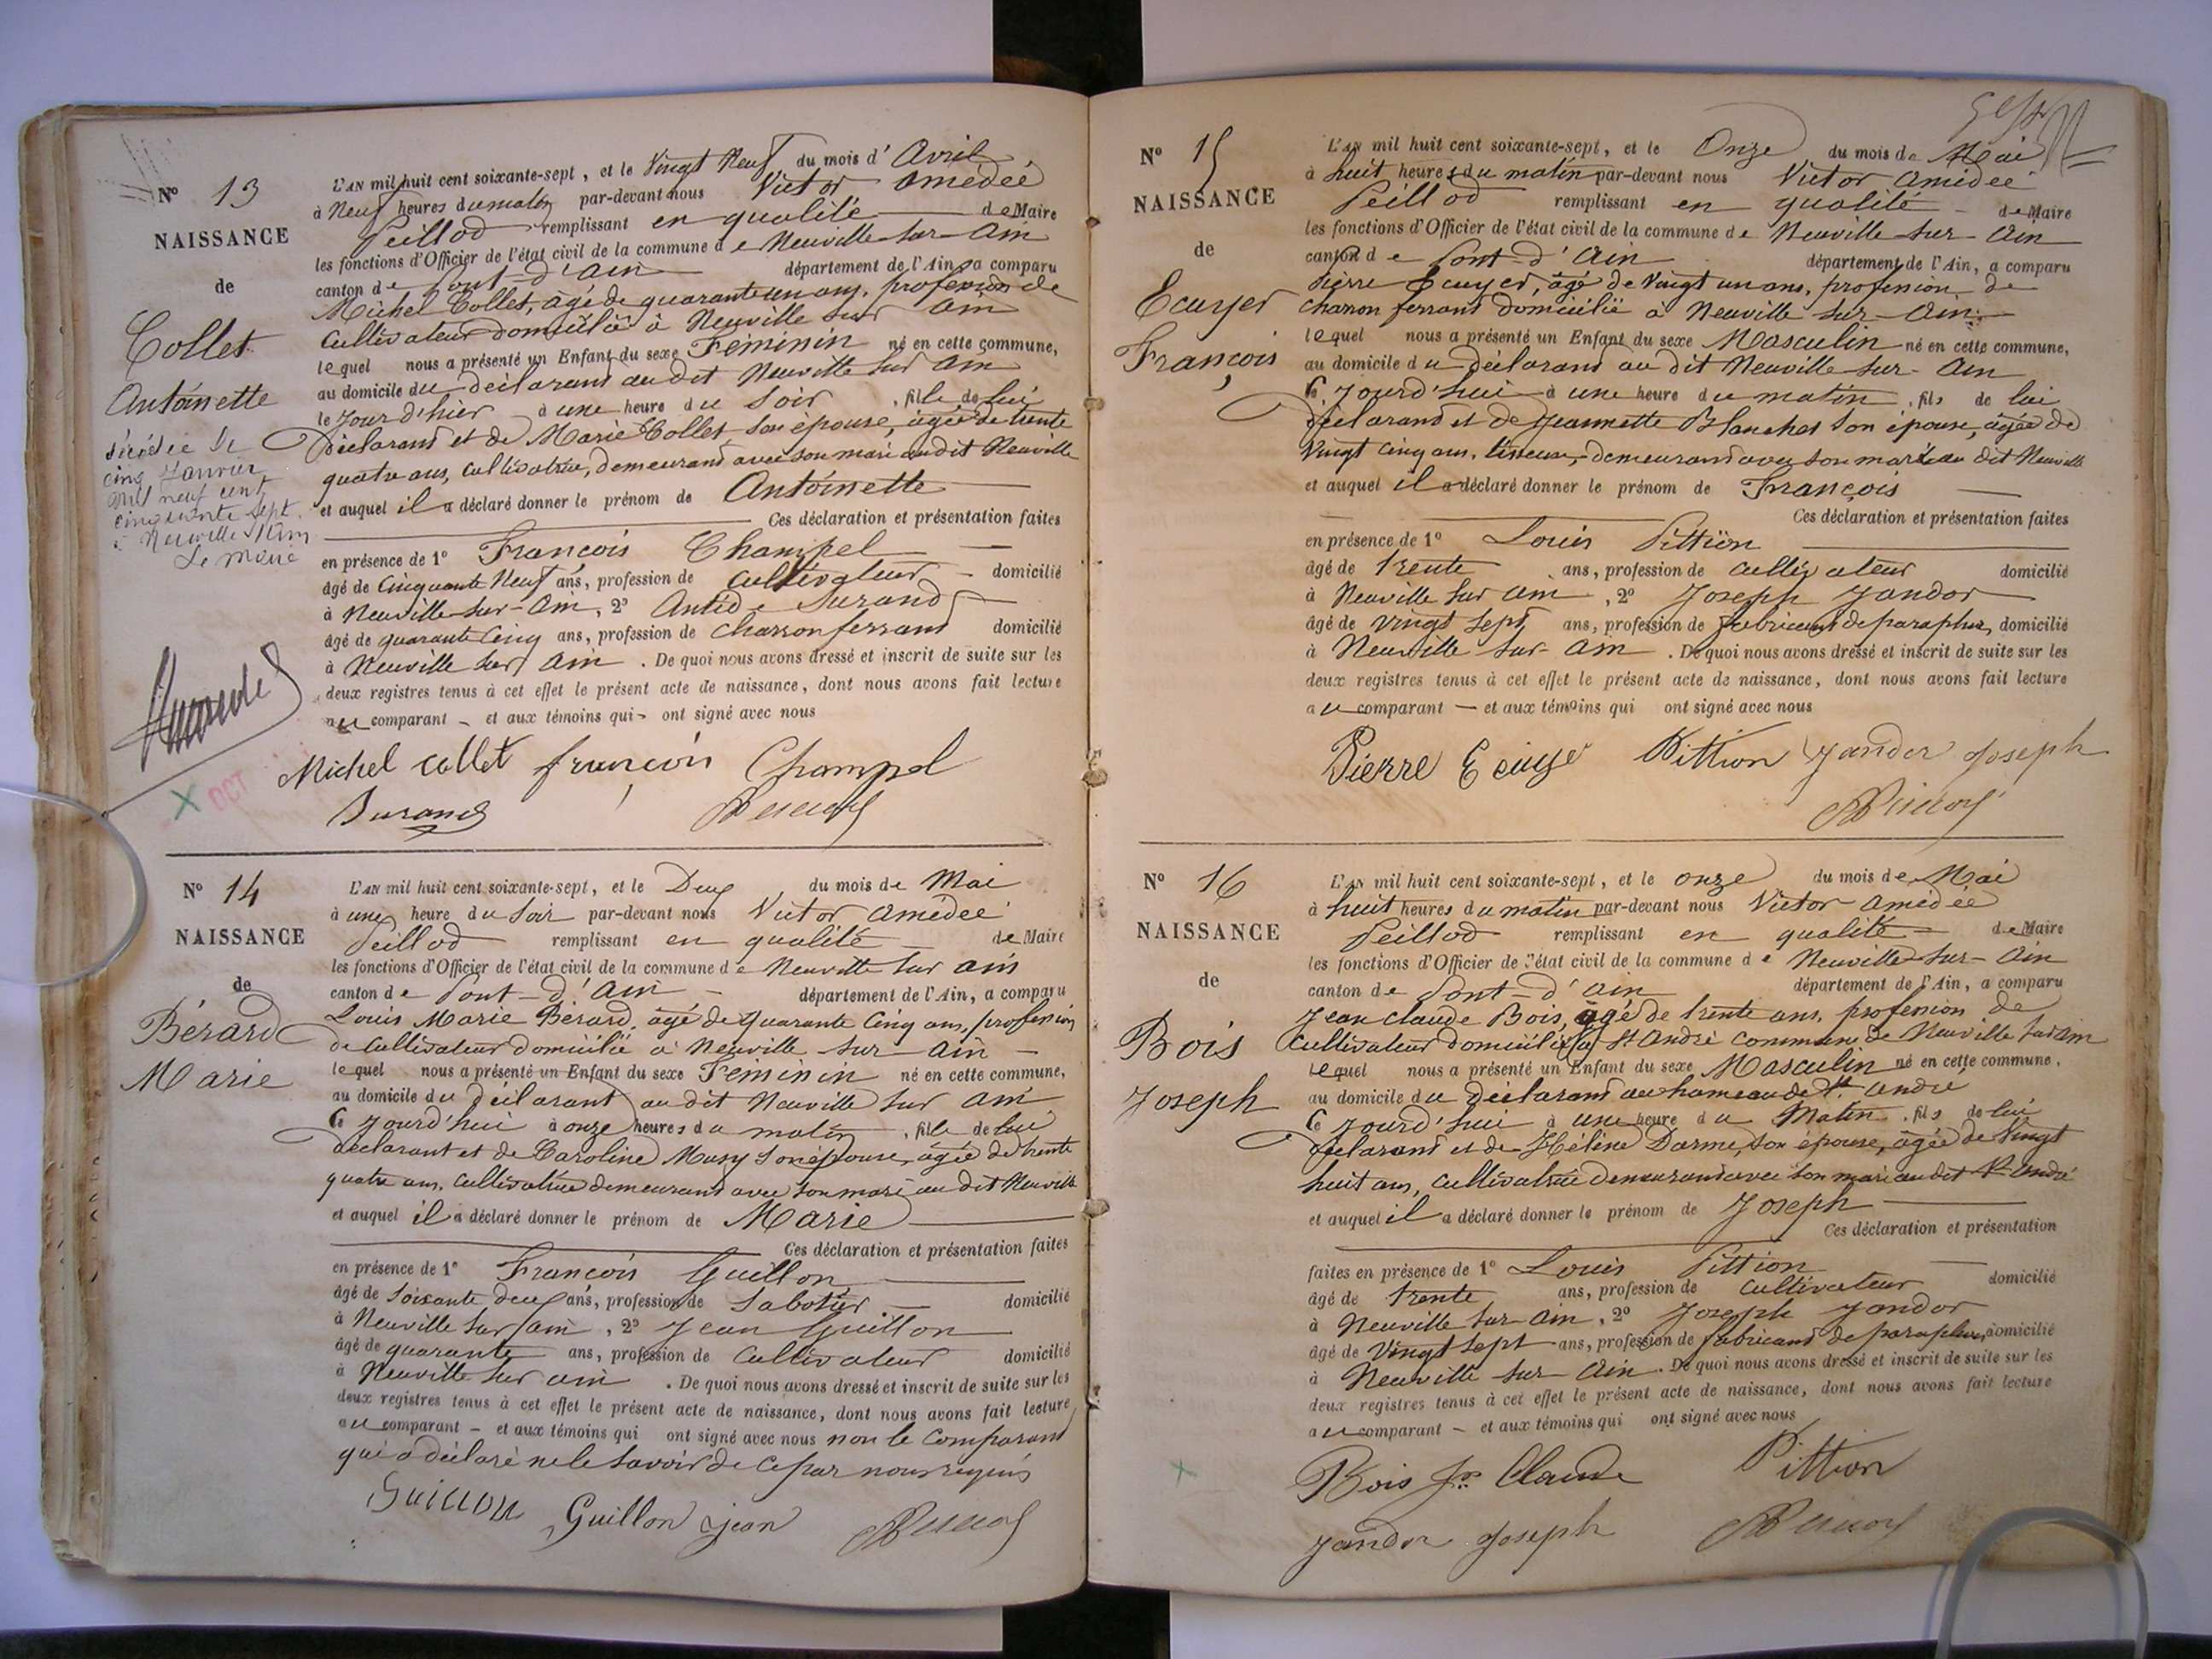 N° 13
NAISSANCE
de
Collet
Antoinette
décédée le
cinq Janvier
mil neuf cent
cinquante sept
à Neuville s/Ain
Le maire
L'AN mil huit cent soixante-sept, et le Vingt Neuf du mois d'Avril
à Neuf heures du matin par-devant nous Victor Amédée
Peillod remplissant en qualité de Maire
les fonctions d'Officier de l'état civil de la commune de Neuville sur Ain
canton de Pont-d'Ain département de l'Ain, a comparu
Michel Collet, âgé de quarante un ans, profession de
Cultivateur domicilié à Neuville sur Ain
lequel nous a présenté un Enfant du sexe Féminin né en cette commune,
au domicile du déclarant au dit Neuville sur Ain
le jour d'hier à une heure du Soir, fille de lui
Déclarant et de Marie Collet son épouse, âgée de trente
quatre ans, cultivatrice, demeurant avec son mari au dit Neuville
et auquel il a déclaré donner le prénom de Antoinette
Ces déclaration et présentation faites
en présence de 1° François Champel
âgé de Cinquante Neuf ans, profession de Cultivateur domicilié
à Neuville-sur-Ain, 2° Antide Durand
âgé de quarante Cinq ans, profession de Charron ferrant domicilié
à Neuville sur Ain. De quoi nous avons dressé et inscrit de suite sur les
deux registres tenus à cet effet le présent acte de naissance, dont nous avons fait lecture
au comparant - et aux témoins qui - ont signé avec nous
Michel collet françois Champel
Durand
X OCT
N° 14
NAISSANCE
de
Bérard
Marie
L'AN mil huit cent soixante-sept, et le Deux du mois de Mai
à une heure du Soir par-devant nous Victor Amédée
Peillod remplissant en qualité de Maire
les fonctions d'Officier de l'état civil de la commune de Neuville sur Ain
canton de Pont-d'Ain département de l'Ain, a comparu
Louis Marie Bérard, âgé de quarante Cinq ans, profession
de Cultivateur domicilié à Neuville sur Ain
lequel nous a présenté un Enfant du sexe Féminin né en cette commune,
au domicile du déclarant au dit Neuville sur Ain
Ce jourd'hui à onze heures du matin, fille de lui
déclarant et de Caroline Musy son épouse, âgée de trente
quatre ans, Cultivatrice demeurant avec son mari au dit Neuville
et auquel il a déclaré donner le prénom de Marie
Ces déclaration et présentation faites
en présence de 1° François Guillon
âgé de Soixante deux ans, profession de Sabotier domicilié
à Neuville sur Ain, 2° Jean Guillon
âgé de quarante ans, profession de Cultivateur domicilié
à Neuville sur Ain. De quoi nous avons dressé et inscrit de suite sur les
deux registres tenus à cet effet le présent acte de naissance, dont nous avons fait lecture
au comparant - et aux témoins qui ont signé avec nous non le Comparant
qui a déclaré ne le savoir de ce par nous requis
Guillon Guillon jean
N° 15
NAISSANCE
de
Ecuyer
François
L'AN mil huit cent soixante-sept, et le Onze du mois de Mai
à huit heures du matin par-devant nous Victor Amédée
Peillod remplissant en qualité - de Maire
les fonctions d'Officier de l'état civil de la commune de Neuville-sur-Ain
canton de Pont-d'Ain département de l'Ain, a comparu
Pierre Ecuyer, âgé de Vingt un ans, profession de
Charron ferrant domicilié à Neuville sur-Ain
lequel nous a présenté un Enfant du sexe Masculin né en cette commune,
au domicile du déclarant au dit Neuville-sur-Ain
Ce jourd'hui à une heure du matin, fils de lui
Déclarant et de Jeannette Blanchet son épouse, âgée de
Vingt Cinq ans, tisseuse, demeurant avec son mari au dit Neuville
et auquel il a déclaré donner le prénom de François
Ces déclaration et présentation faites
en présence de 1° Louis Pittion
âgé de Trente ans, profession de Cultivateur domicilié
à Neuville sur Ain, 2° Joseph Jandor
âgé de Vingt Sept ans, profession de fabricant de parapluies, domicilié
à Neuville sur-Ain. De quoi nous avons dressé et inscrit de suite sur les
deux registres tenus à cet effet le présent acte de naissance, dont nous avons fait lecture
au comparant - et aux témoins qui ont signé avec nous
Pierre Ecuye Pittion Jandor Joseph
N° 16
NAISSANCE
de
Bois
Joseph
L'AN mil huit cent soixante-sept, et le onze du mois de Mai
à huit heures du matin par-devant nous Victor Amédée
Peillod remplissant en qualité - de Maire
les fonctions d'Officier de l'état civil de la commune de Neuville-sur-Ain
canton de Pont-d'Ain département de l'Ain, a comparu
Jean Claude Bois, âgé de trente ans, profession de
Cultivateur domicilié à St André Commune de Neuville sur Ain
lequel nous a présenté un Enfant du sexe Masculin né en cette commune.
au domicile du déclarant au hameau de St André
Ce jourd'hui à une heure du Matin, fils de lui
Déclarant et de Hélène Darme, son épouse, âgée de Vingt
huit ans, Cultivatrice demeurant avec son mari au dit St André
et auquel il a déclaré donner le prénom de Joseph
Ces déclaration et présentation
faites en présence de 1° Louis Pittion domicilié
âgé de Trente ans, profession de Cultivateur
à Neuville sur-Ain, 2° Joseph Jandor
âgé de Vingt Sept ans, profession de fabricant de parapluies, domicilié
à Neuville sur-Ain. De quoi nous avons dressé et inscrit de suite sur les
deux registres tenus à cet effet le présent acte de naissance, dont nous avons fait lecture
au comparant - et aux témoins qui ont signé avec nous
Bois Jn Claude Pittion
Jandor Joseph